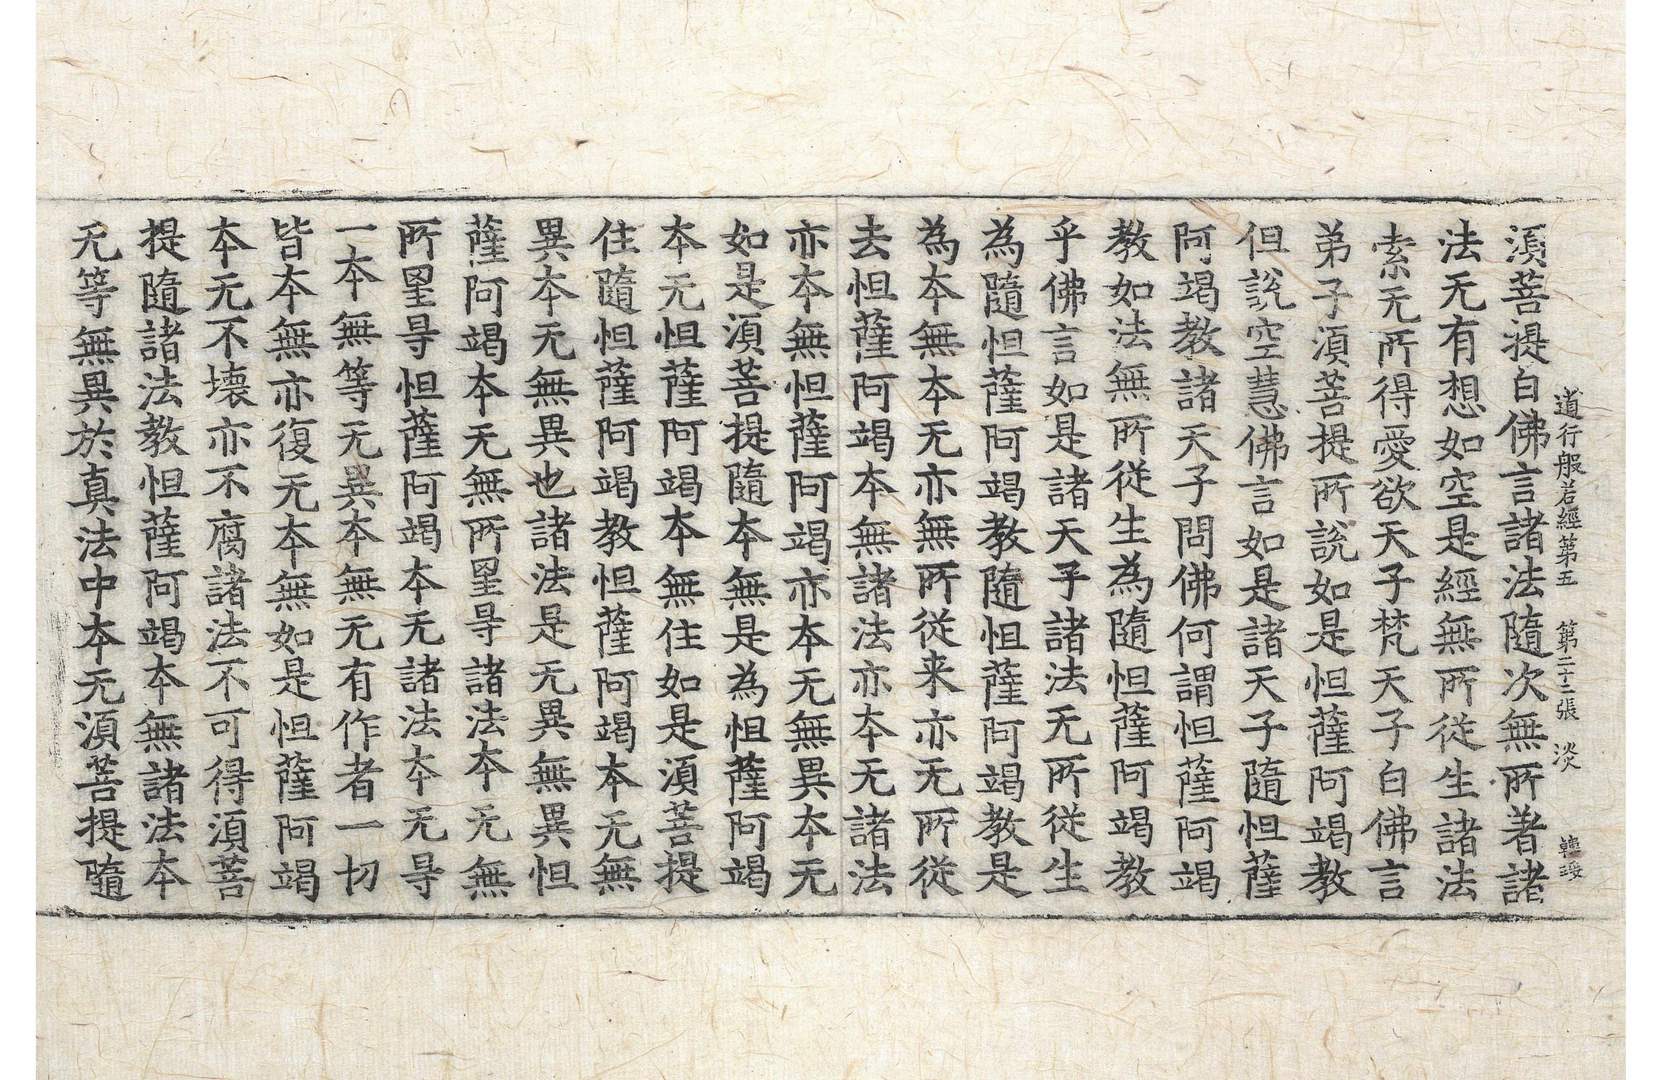 道行般若經第五 第二十二張 淡
湏菩提白佛言諸法隨次無所著諸
法无有想如空是經無所從生諸法
索无所得愛欲天子梵天子白佛言
弟子湏菩提所說如是怛薩阿竭教
但說空慧佛言如是諸天子隨怛薩
阿竭教諸天子問佛何謂怛薩阿竭
教如法無所從生為隨怛薩阿竭教
乎佛言如是諸天子諸法无所從生
為隨怛薩阿竭教隨怛薩阿竭教是
為本無本无亦無所從来亦无所從
去怛薩阿竭本無諸法亦本无諸法
亦本無怛薩阿竭亦本无無異本无
如是湏菩提隨本無是為怛薩阿竭
本无怛薩阿竭本無住如是湏菩提
住隨怛薩阿竭教怛薩阿竭本无無
異本无無異也諸法是无異無異怛
薩阿竭本无無所罣㝵諸法本无無
所罣㝵怛薩阿竭本无諸法本无㝵
一本無等无異本無无有作者一切
皆本無亦復无本無如是怛薩阿竭
本无不壞亦不腐諸法不可得湏菩
提隨諸法教怛薩阿竭本無諸法本
无等無異於真法中本无湏菩提隨